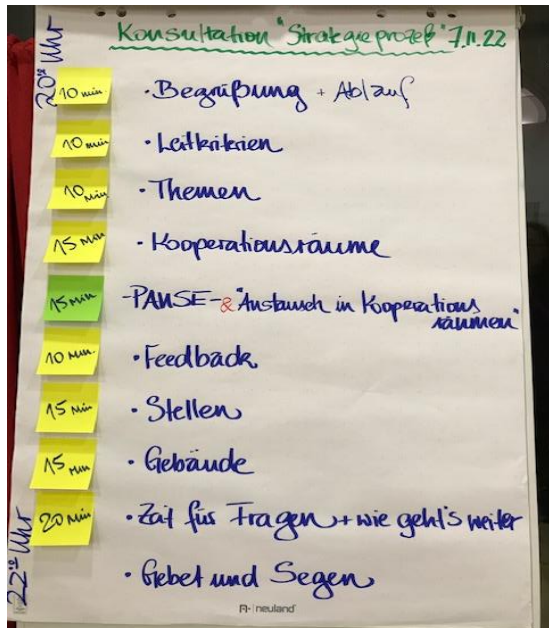 Konsultation "Strategieprozeß" 7.11.22
20°° Uhr
10 min
· Begrüßung + Ablauf
10 min
· Leitkriterien
10 min
· Themen
15 Min
· Kooperationsräume
15 Min
- PAUSE - & "Austausch in Kooperations
räumen"
10 Min.
· Feedback
15 Min
· Stellen
15 Min
· Gebäude
20 Min
· Zeit für Fragen + wie geht's weiter
22°° Uhr
· Gebet und Segen
neuland